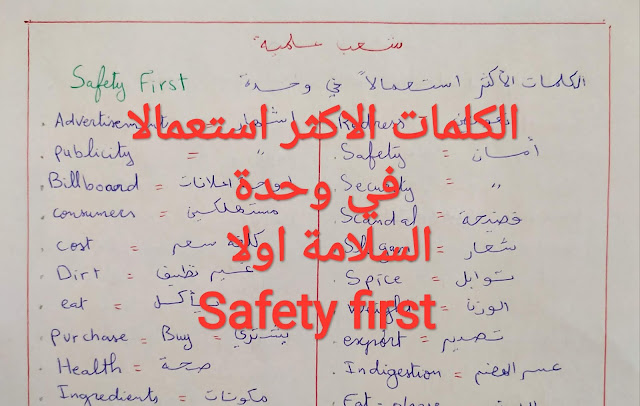 شعب علمية
الكلمات الأكثر استعمالاً في وحدة Safety First
الكلمات الاكثر استعمالا
في وحدة
السلامة اولا
Safety first
. Advertisement = اشهار
. publicity = "
. Billboard = لوحة اعلانات
. consumers = مستهلكين
. cost = كلفة سعر
. Dirt = غير نظيف
. eat = يأكل
. purchase = Buy = يشتري
. Health = صحة
. Ingredients = مكونات
. Safety = أمان
. Security = "
. Scandal = فضيحة
. Slogan = شعار
. Spice = توابل
. Weight = الوزن
. export = تصدير
. Indigestion = عسر الهضم